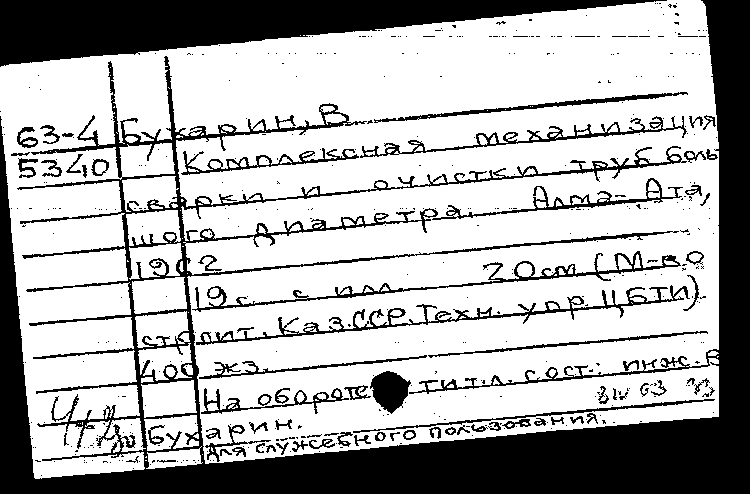 63-4 Бухарин, В
5340 Комплексная механизация
сварки и очистки труб боль
шого диаметра. Алма-Ата,
1962
19с. с илл. 20см (М-во
строит. Каз.ССР. Техн. упр. ЦБТИ)
400 экз.
На обороте тит.л. сост.: инж. В
Бухарин.
Для служебного пользования.